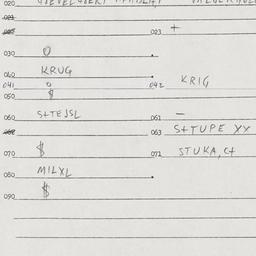 020
021
023 +
030 0
040 KRUG
041 042 KRIG
050 $
060 S+TEJSL 061 —
062 063 S+TUPE XX
070 $ 071 STUKA, C+
080 MILXL
$
090